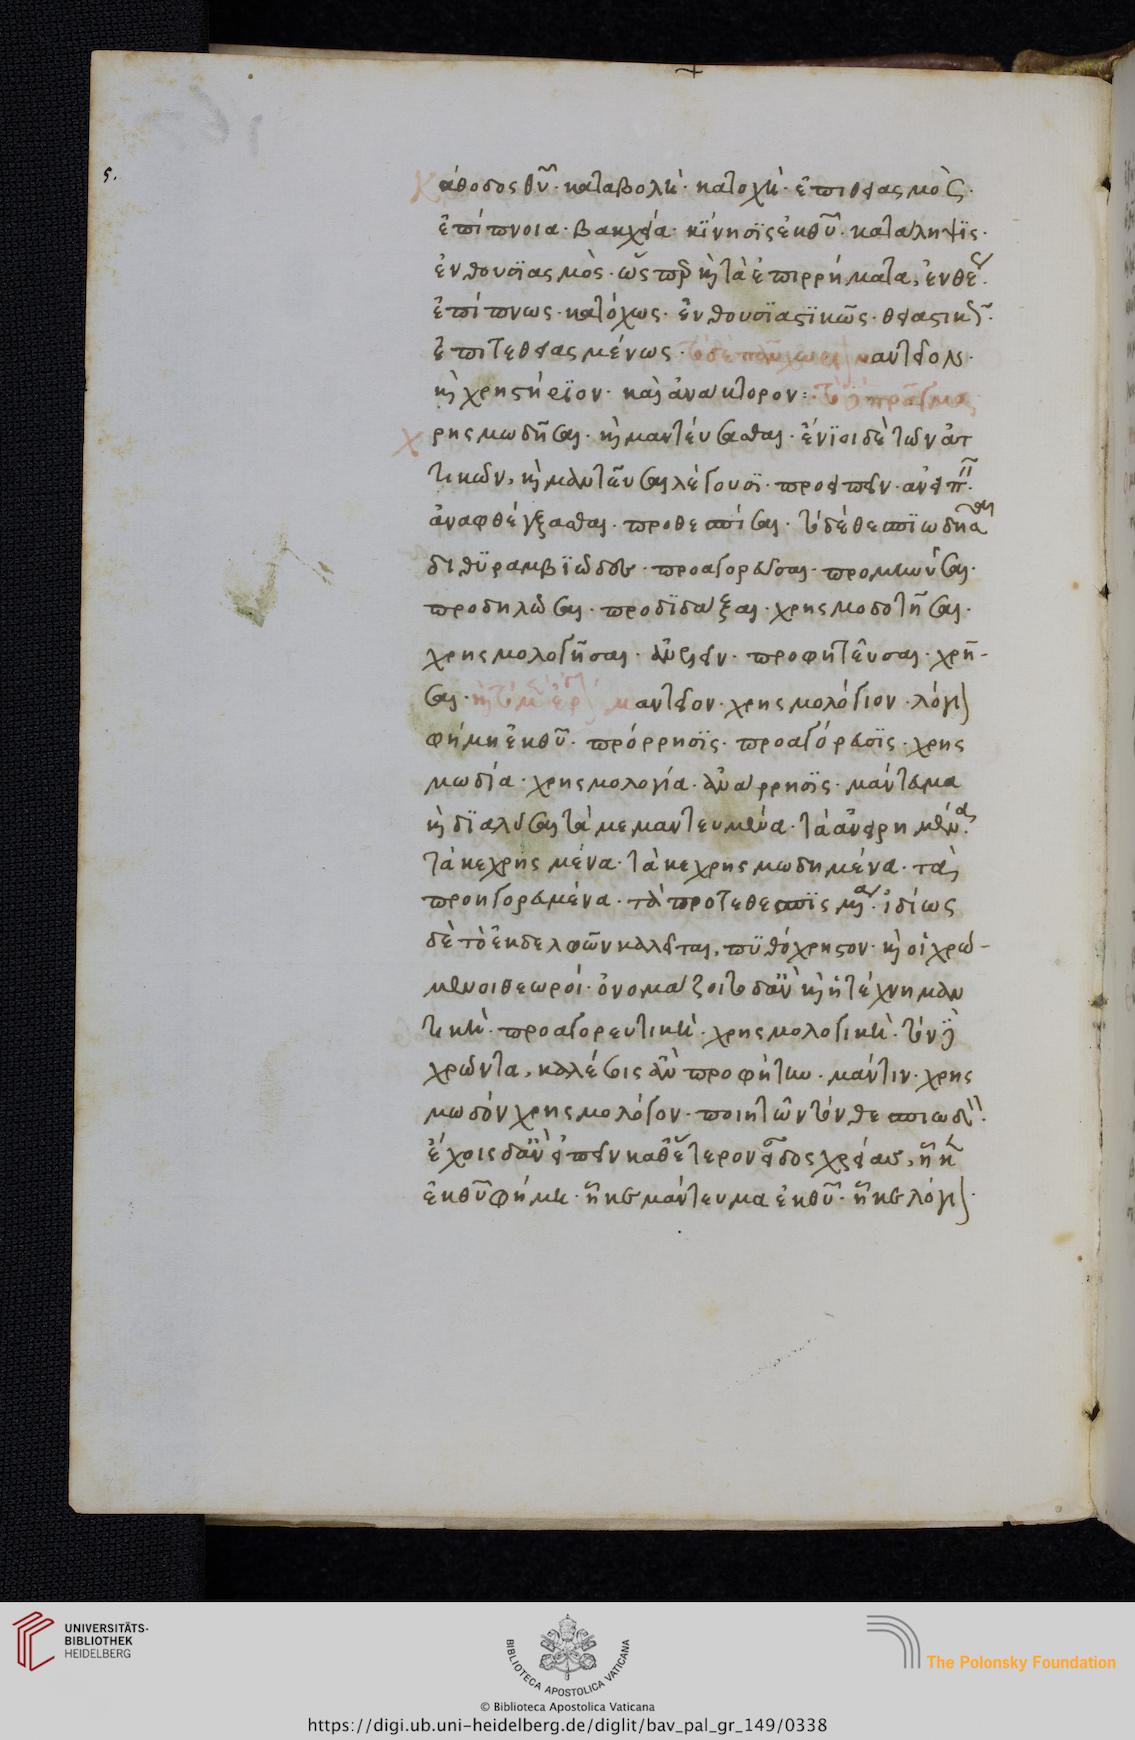 ς.
Κάθοδος θῦ· καταβολή· κατοχή· ἐπιθειασμὸς·
ἐπίπνοια· βακχεία· κίνησις ἐκ θῦ· κατάληψις·
ἐνθουσιασμὸς· ὥσπερ καὶ τὰ ἐπιρρήματα, ἐνθέως·
ἐπίπνως· κατόχως· ἐνθουσιαστικῶς· θειαστικῶς·
ἐπιτεθειασμένως· τὸ δὲ μαντεῖον·
καὶ χρηστήριον· καὶ ἀνάκτορον: τὸ πρᾶγμα
χρησμωδῆσαι· καὶ μαντεύσασθαι· ἔνιοι δὲ τῶν ἀτ
τικῶν, καὶ μαντεῦσαι λέγουσι· προειπεῖν· ἀνειπεῖν·
ἀναφθέγξασθαι· προθεσπίσαι· τὸ δὲ θεσπιωδῆσαι
διθυραμβῶδες· προαγορεῦσαι· προμηνῦσαι·
προδηλῶσαι· προδιδάξαι· χρησμοδοτῆσαι·
χρησμολογῆσαι· ἀνειπεῖν· προφητεῦσαι· χρῆ-
σαι· μαντεῖον· χρησμολόγιον· λόγιον
φήμη ἐκ θῦ· πρόρρησις· προαγόρευσις· χρησ
μωδία· χρησμολογία· ἀνάρρησις· μάντευμα
καὶ διαλύσαι τὰ μεμαντευμένα· τὰ ἀνειρημένα·
τὰ κεχρησμένα· τὰ κεχρησμωδημένα· τὰ
προηγορευμένα· τὰ προτεθεσπισμένα· ἰδίως
δὲ τὸ ἐκ δελφῶν καλεῖται, πυθόχρηστον· καὶ οἱ χρώ-
μενοι θεωροί· ὀνομάζοιτο δ' ἂν καὶ ἡ τέχνη μαν
τική· προαγορευτική· χρησμολογική· τὸν
χρῶντα, καλέσεις ἂν προφήτην· μάντιν· χρησ
μωδὸν χρησμολόγον· ποιητῶν τὸν θεσπιωδόν·
ἔχοις δ' ἂν εἰπεῖν καθ' ἕτερον εἶδος χρείας, ἧκεν
ἐκ θῦ φήμη· ἧκε μάντευμα ἐκ θῦ· ἧκε λόγιον·
UNIVERSITÄTS-
BIBLIOTHEK
HEIDELBERG
BIBLIOTECA APOSTOLICA VATICANA
The Polonsky Foundation
© Biblioteca Apostolica Vaticana
https://digi.ub.uni-heidelberg.de/diglit/bav_pal_gr_149/0338